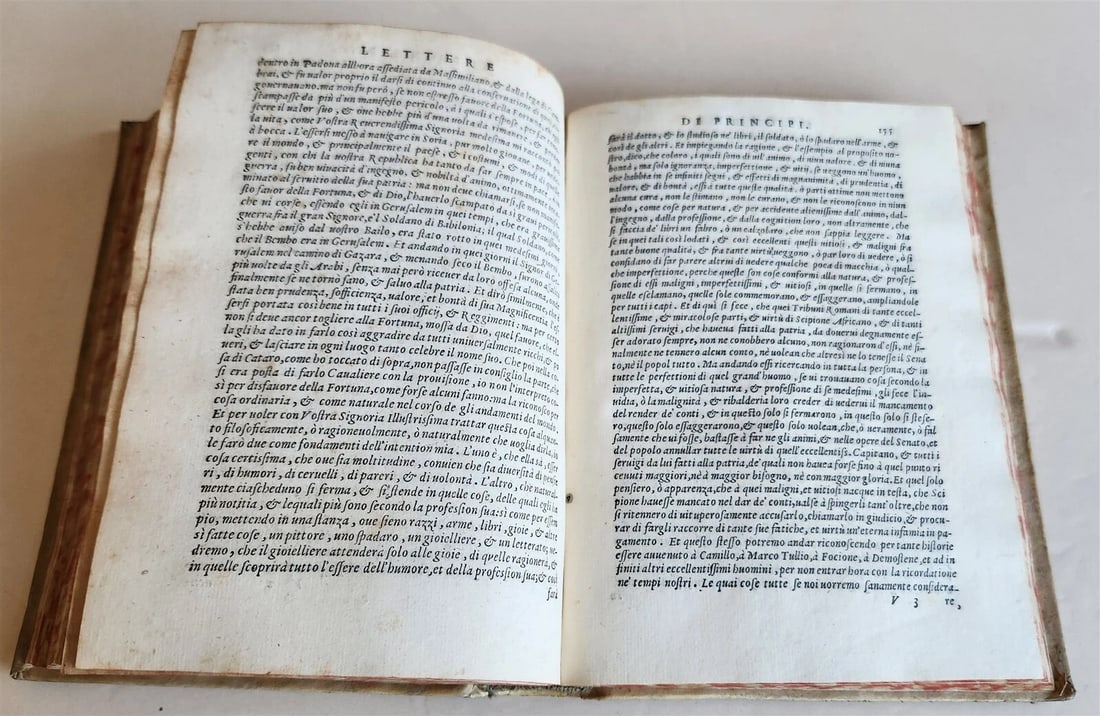 LETTERE
dentro in Padoua allhora assediata da Massimiliano, & dalla lega di
brai, & fu valor proprio il darsi di continuo alla conseruatione di
gouernauano. ma non fu però, se non espresso fauore della Fortuna,
scampasse da più d'un manifesto pericolo, à i quali s'espose, per far
scere il ualor suo, & one hebbe più d'una uolta da rimaner
la vita, come Vostra Reuerendissima Signoria medesima mi raccontò
à bocca. L'essersi messo à nauigare in Soria, pur molto giouane, per
re il mondo, & principalmente il paese, & i costumi, & modi
genti, con chi la uostra Republica ha tanto da far sempre in pace,
guerra, fu ben viuacità d'ingegno, & nobiltà d'animo, ottimamente
minato al seruitio della sua patria: ma non deue chiamarsi, se non
sto fauor della Fortuna, & di Dio, l'hauerlo scampato da sì graui pericoli,
che ui corse, essendo egli in Gerusalem in quei tempi, che era
guerra fra il gran Signore, e'l Soldano di Babilonia; il qual Soldano,
s'hebbe auiso dal uostro Bailo, era stato rotto in quei medesimi giorni,
che il Bembo era in Gerusalem. Et andando in quei giorni il Signor di
rusalem nel camino di Gazara, & menando seco il Bembo, furono assaliti
più uolte da gli Arabi, senza mai però riceuer da loro offesa alcuna,
finalmente se ne tornò sano, & saluo alla patria. Et dirò similmente,
stata ben prudenza, sofficienza, ualore, et bontà di sua Magnificenza, l'es
sersi portata così bene in tutti i suoi officij, & Reggimenti: ma per
non si deue ancor togliere alla Fortuna, mossa da Dio, quel fauore, che
la gli ha dato in farlo così aggradire da tutti uniuersalmente ricchi, & po
ueri, & lasciare in ogni luogo tanto celebre il nome suo. Che poi nella
sa di Cataro, come ho toccato di sopra, non passasse in consiglio la parte,
si era posta di farlo Caualiere con la prouisione, io non l'interpreto
sì per disfauore della Fortuna, come forse alcuni fanno: ma la riconosco per
cosa ordinaria, & come naturale nel corso de gli andamenti del mondo.
Et per uoler con Vostra Signoria Illustrissima trattar questa cosa alquan-
to filosoficamente, ò ragioneuolmente, ò naturalmente che uoglia dirla,
le farò due come fondamenti dell'intention mia. L'uno è, che ella sà, esser
cosa certissima, che oue sia moltitudine, conuien che sia diuersità di pense-
ri, di humori, di ceruelli, di pareri, & di uolontà. L'altro, che natural-
mente ciascheduno si ferma, & si stende in quelle cose, delle quali egli ha
più notitia, & lequali più sono secondo la profession sua: sì come per esem
pio, mettendo in una stanza, oue sieno razzi, arme, libri, gioie, & altre
sì fatte cose, un pittore, uno spadaro, un gioielliere, & un letterato, ue-
dremo, che il gioielliere attenderà solo alle gioie, di quelle ragionerà, &
in quelle scoprirà tutto l'essere dell'humore, et della profession sua; & così
farà
DE PRINCIPI. 155
farà il dotto, & lo studioso ne' libri, il soldato, ò lo spadaro nell'arme, &
così de gli altri. Et impiegando la ragione, & l'essempio al proposito no-
stro, dico, che coloro, i quali sono di uil'animo, di niun ualore, & di niuna
bontà, ma solo ignoranza, imperfettione, & uitij, se ueggono un'huomo,
che habbia in se infiniti segni, & effetti di magnanimità, di prudentia, di
ualore, & di bontà, essi à tutte queste qualità, ò parti ottime non mettono
alcuna cura, non le stimano, non le curano, & non le riconoscono in niun
modo, come cose per natura, & per accidente alienissime dall'animo, dal-
l'ingegno, dalla professione, & dalla cognition loro, non altramente, che
si faccia de' libri un fabro, ò un calzolaro, che non sappia leggere. Ma
se in quei tali così lodati, & così eccellenti questi uitiosi, & maligni fra
tante buone qualità, & fra tante virtù ueggono, ò par loro di uedere, ò si
confidano di far parere altrui di uedere qualche poca di macchia, ò qual-
che imperfettione, perche queste son cose conformi alla natura, & profes-
sione di essi maligni, imperfettissimi, & uitiosi, in quelle si fermano, in
quelle esclamano, quelle sole commemorano, & essaggerano, ampliandole
per tutti i capi. Et di quì si fece, che quei Tribuni Romani di tante eccel-
lentissime, & miracolose parti, & uirtù di Scipione Africano, & di tanti
altissimi seruigi, che haueua fatti alla patria, da douerui degnamente es-
ser adorato sempre, non ne conobbero alcuno, non ragionaron d'essi, nè fi-
nalmente ne tennero alcun conto, nè uolean che altresì ne lo tenesse il Sena
to, nè il popol tutto. Ma andando essi ricercando in tutta la persona, & in
tutte le perfettioni di quel grand'huomo, se ui trouauano cosa secondo la
imperfetta, & uitiosa natura, & professione di se medesimi, gli fece l'in-
uidia, ò la malignità, & ribalderia loro creder di uederui il mancamento
del render de' conti, & in questo solo si fermarono, in questo solo si stese-
ro, questo solo essaggerarono, & questo solo uolean, che, ò ueramente, ò fal
samente che ui fosse, bastasse à far ne gli animi, & nelle opere del Senato, et
del popolo annullar tutte le uirtù di quell'eccellentiss. Capitano, & tutti i
seruigi da lui fatti alla patria, de' quali non hauea forse fino à quel punto ri
ceuuti maggiori, nè à maggior bisogno, nè con maggior gloria. Et quel solo
pensiero, ò apparenza, che à quei maligni, et uitiosi nacque in testa, che Sci
pione hauesse mancato nel dar de' conti, ualse à spingerli tant'oltre, che non
si ritennero di uituperosamente accusarlo, chiamarlo in giudicio, & procu-
rar di fargli raccorre di tante sue fatiche, et virtù un'eterna infamia in pa-
gamento. Et questo stesso potremo andar riconoscendo per tante historie
essere auuenuto à Camillo, à Marco Tullio, à Focione, à Demostene, et ad in
finiti altri eccellentissimi huomini, per non entrar hora con la ricordatione
ne' tempi nostri. Le quai cose tutte se noi uorremo sanamente considera-
V 3 re,